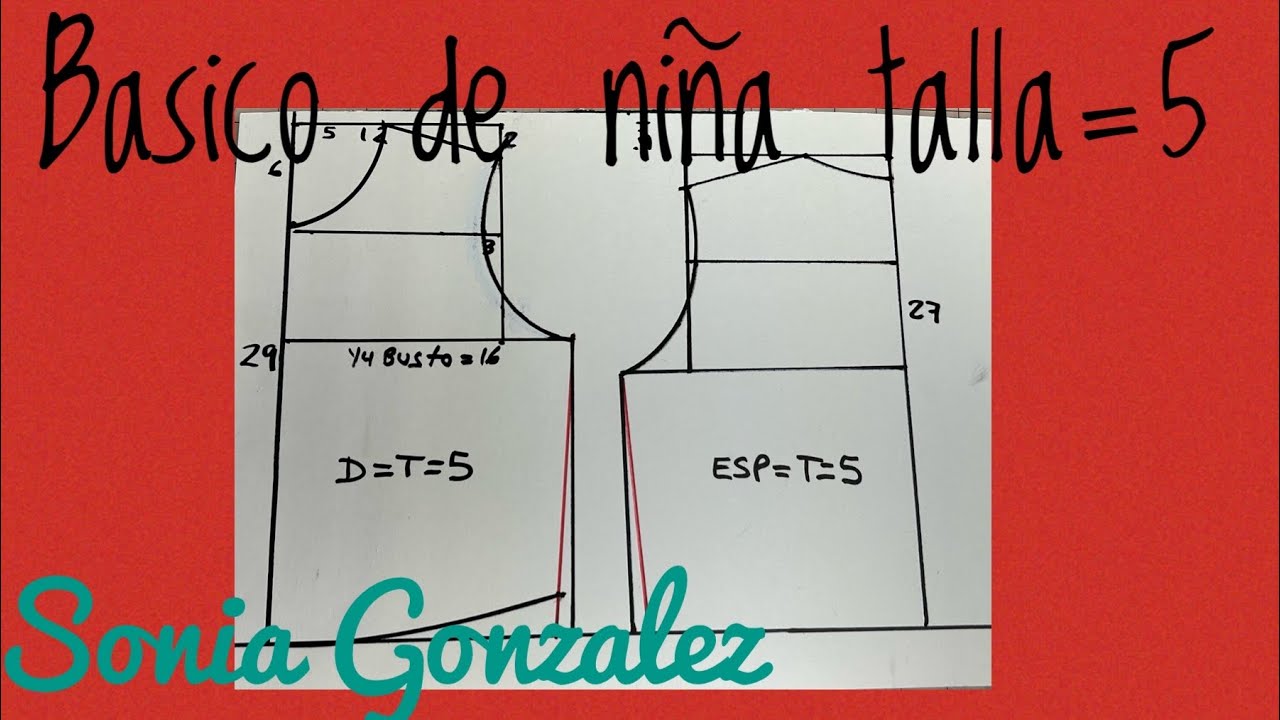 Basico de niña talla=5
5 12 2
6
8
29
1/4 Busto = 16
27
D=T=5
ESP=T=5
Sonia Gonzalez